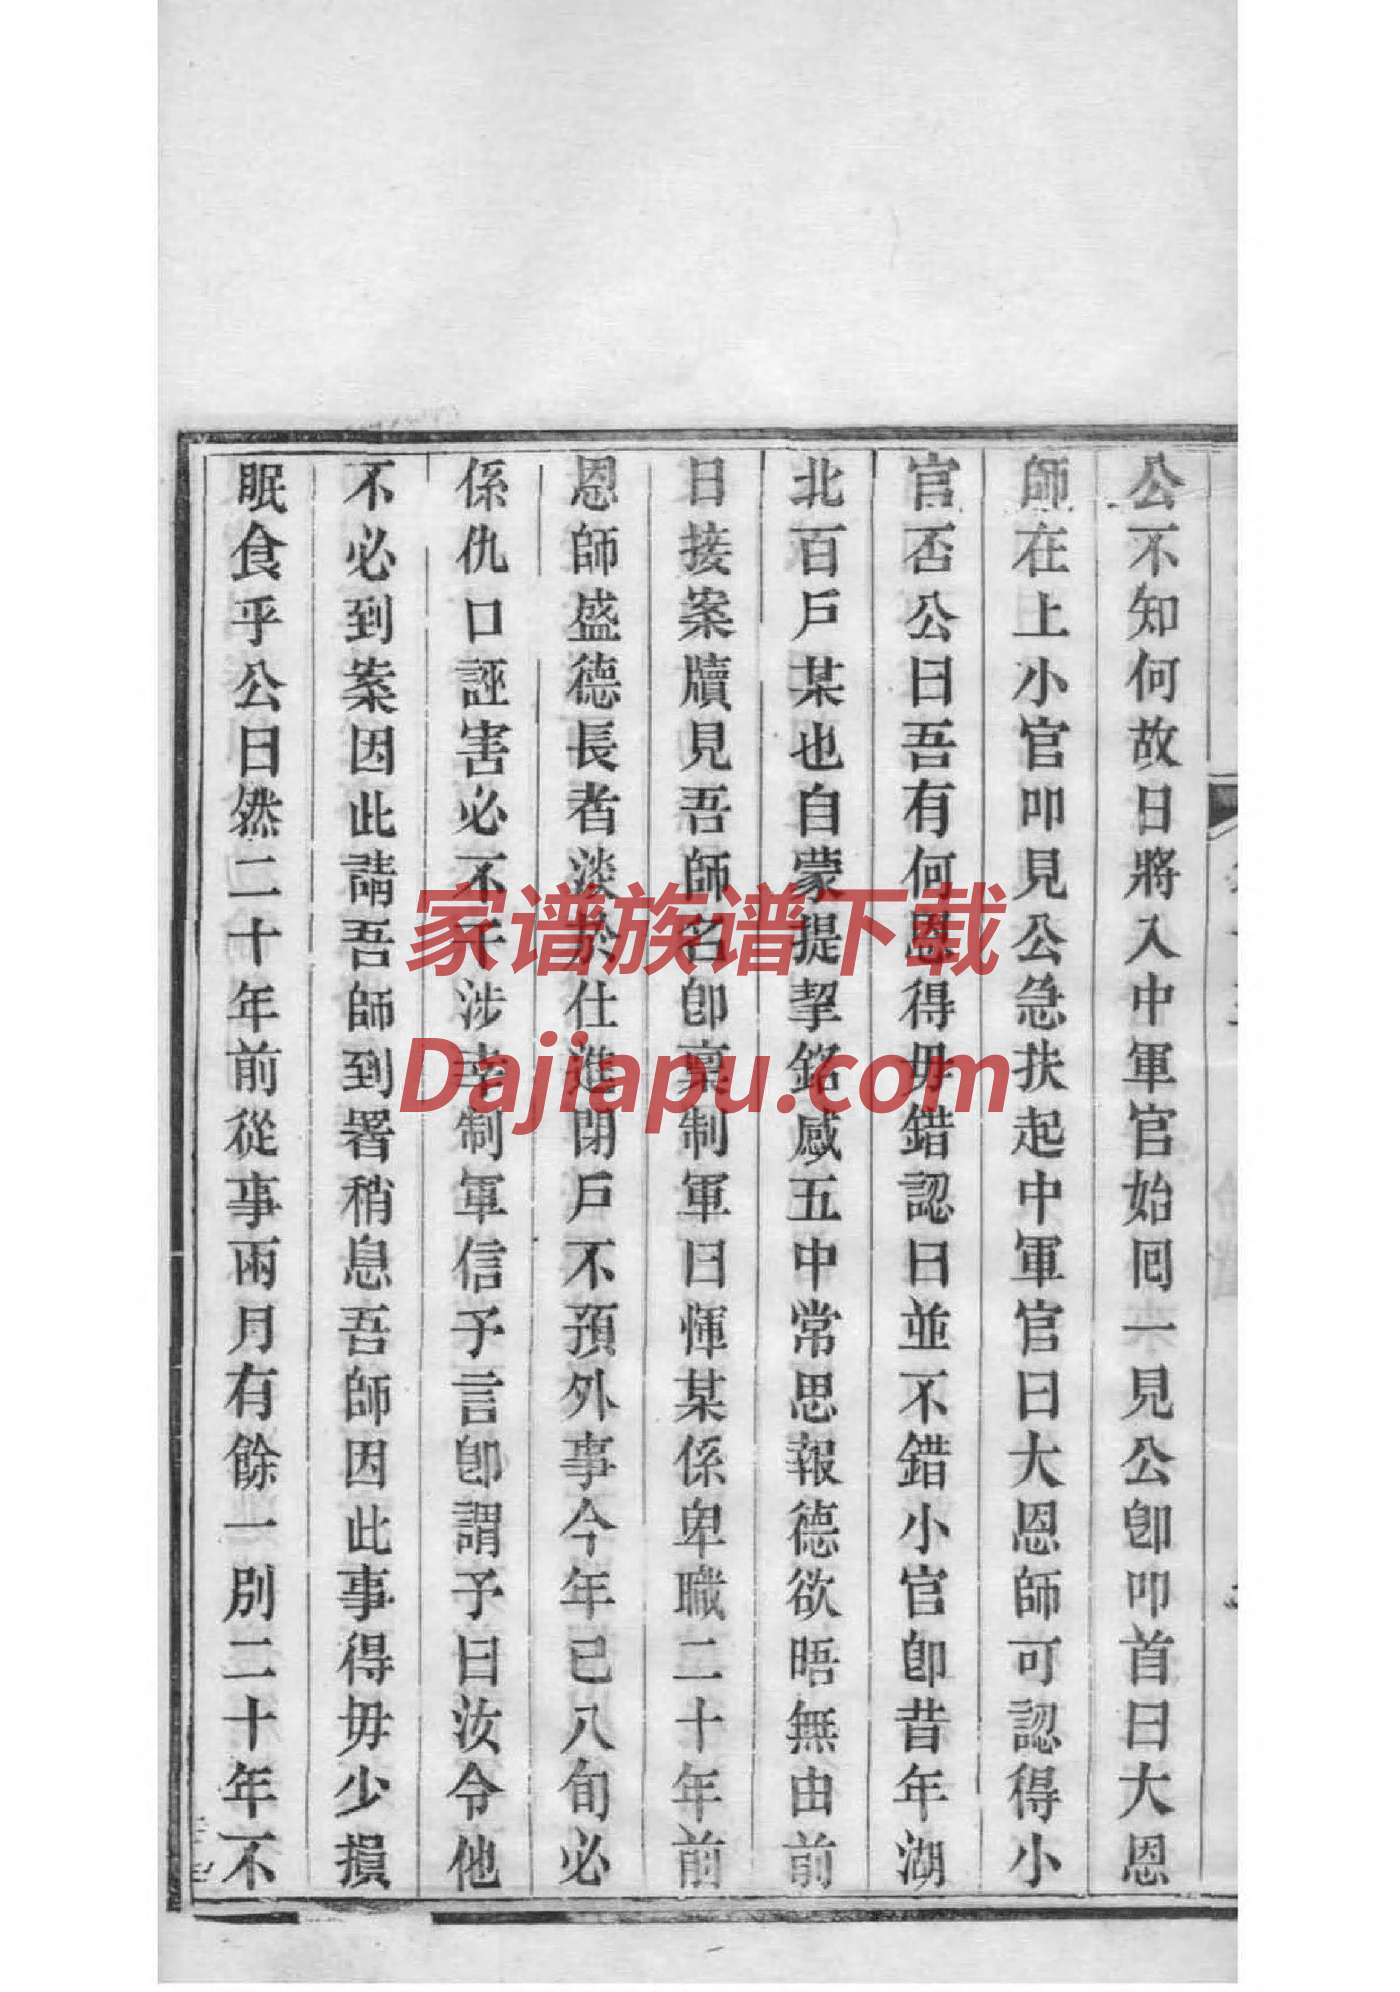 公不知何故日將入中軍官始回一見公卽叩首曰大恩
師在上小官叩見公急扶起中軍官曰大恩師可認得小
官否公曰吾有何恩得毋錯認曰並不錯小官卽昔年湖
北百戶某也自蒙提挈銘感五中常思報德欲晤無由前
日接案牘見吾師名卽稟制軍曰惲某係卑職二十年前
恩師盛德長者淡於仕進閉戶不預外事今年已八旬必
係仇口誣害必不干涉幸制軍信予言卽謂予曰汝令他
不必到案因此請吾師到署稍息吾師因此事得毋少損
眠食乎公曰然二十年前從事兩月有餘一別二十年不
家谱族谱下载
Dajiapu.com